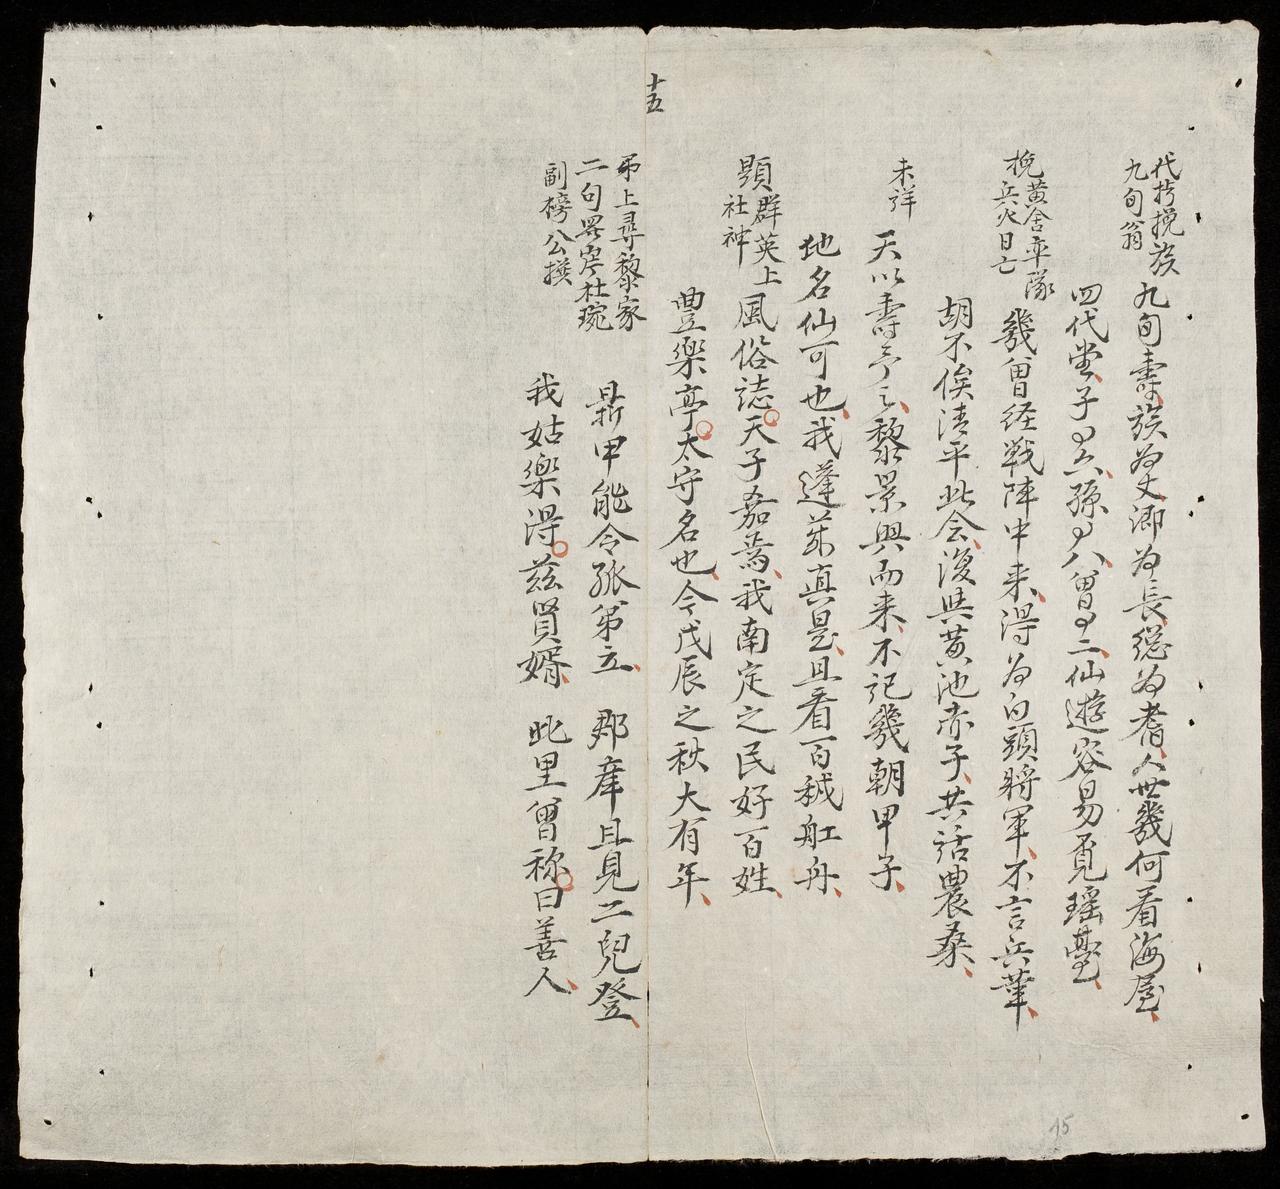 十五
代村挽族
九旬翁
九旬壽族為丈鄉為長總為耆人世幾何看海屋
四代堂子四六孫四八曾四二仙遊容易覓瑶臺
挽黄舍率隊
兵火日亡
幾曾経戦陣中来得為白頭將軍不言兵革
胡不俟清平此会復與黄池赤子共話農桑
未詳
天以壽予之黎景興而来不記幾朝甲子
地名仙可也我蓬莱真是且看一百䑽舡舟
顕群英上
社神
風俗誌天子嘉焉我南定之民好百姓
豊樂亭太守名也今戊辰之秋大有年
弟上尋黎家
二句杜琬
副榜公撰
鼎甲能令張弟立 郡庠且見二兒登
我姑樂得茲賢婿 此里曾称曰善人
15